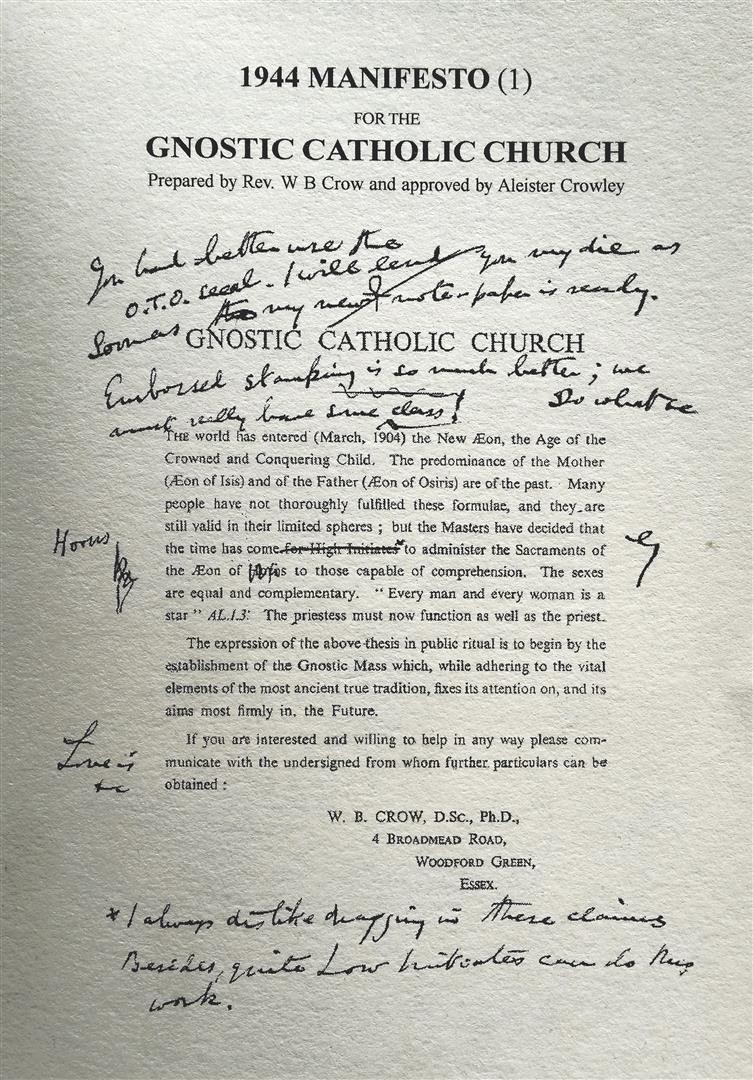 1944 MANIFESTO (1)
FOR THE
GNOSTIC CATHOLIC CHURCH
Prepared by Rev. W B Crow and approved by Aleister Crowley
You had better use the
O.T.O. seal. I will lend you my die as
soon as my new notepaper is ready.
GNOSTIC CATHOLIC CHURCH
Embossed stamping is so much better; we
must really have some class!
Do what &c
THE world has entered (March, 1904) the New Æon, the Age of the
Crowned and Conquering Child. The predominance of the Mother
(Æon of Isis) and of the Father (Æon of Osiris) are of the past. Many
people have not thoroughly fulfilled these formulae, and they are
still valid in their limited spheres ; but the Masters have decided that
Horus
the time has come for High Initiates* to administer the Sacraments of
the Æon of to those capable of comprehension. The sexes
are equal and complementary. “ Every man and every woman is a
star ” AL.I.3: The priestess must now function as well as the priest.
The expression of the above thesis in public ritual is to begin by the
establishment of the Gnostic Mass which, while adhering to the vital
elements of the most ancient true tradition, fixes its attention on, and its
aims most firmly in, the Future.
If you are interested and willing to help in any way please com-
Love is
&c
municate with the undersigned from whom further particulars can be
obtained :
W. B. CROW, D.Sc., Ph.D.,
4 BROADMEAD ROAD,
WOODFORD GREEN,
ESSEX.
* I always dislike dragging in these claims
Besides, quite Low Initiates can do this
work.